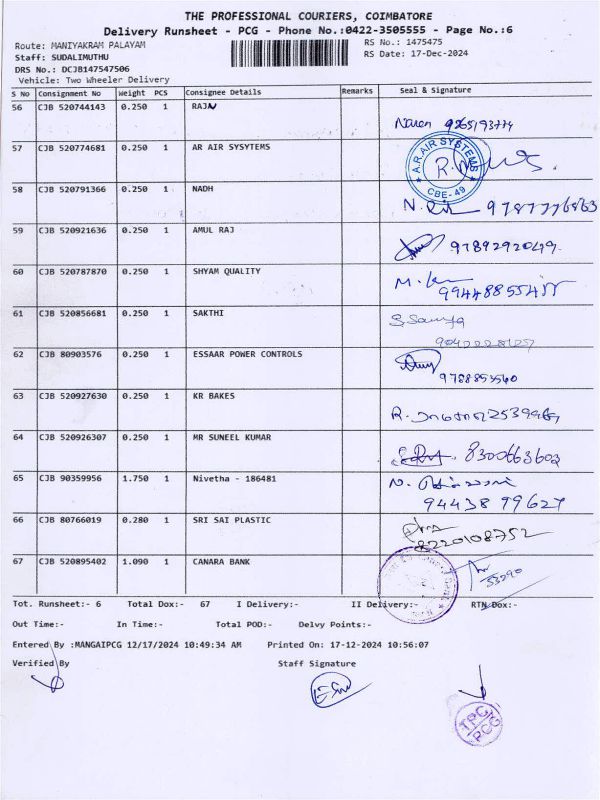 THE PROFESSIONAL COURIERS, COIMBATORE
Delivery Runsheet - PCG - Phone No.:0422-3505555 - Page No.:6
Route: MANIYAKRAM PALAYAM RS No.: 1475475
Staff: SUDALIMUTHU RS Date: 17-Dec-2024
DRS No.: DCJB147547506
Vehicle: Two Wheeler Delivery
S No Consignment No Weight PCS Consignee Details Remarks Seal & Signature
56 CJB 520744143 0.250 1 RAJN
Naren
57 CJB 520774681 0.250 1 AR AIR SYSYTEMS
A.R.AIR SYSTEMS
CBE-49
58 CJB 520791366 0.250 1 NADH
N. 9787776863
59 CJB 520921636 0.250 1 AMUL RAJ
9789292049
60 CJB 520787870 0.250 1 SHYAM QUALITY
M.
61 CJB 520856681 0.250 1 SAKTHI
62 CJB 80903576 0.250 1 ESSAAR POWER CONTROLS
9788853560
63 CJB 520927630 0.250 1 KR BAKES
R.
64 CJB 520926307 0.250 1 MR SUNEEL KUMAR
8300663602
65 CJB 90359956 1.750 1 Nivetha - 186481
N.
94438 99627
66 CJB 80766019 0.280 1 SRI SAI PLASTIC
8220108752
67 CJB 520895402 1.090 1 CANARA BANK
55290
Tot. Runsheet:- 6 Total Dox:- 67 I Delivery:- II Delivery:- RTN Dox:-
Out Time:- In Time:- Total POD:- Delvy Points:-
Entered By :MANGAIPCG 12/17/2024 10:49:34 AM Printed On: 17-12-2024 10:56:07
Verified By Staff Signature
TPC
PCG